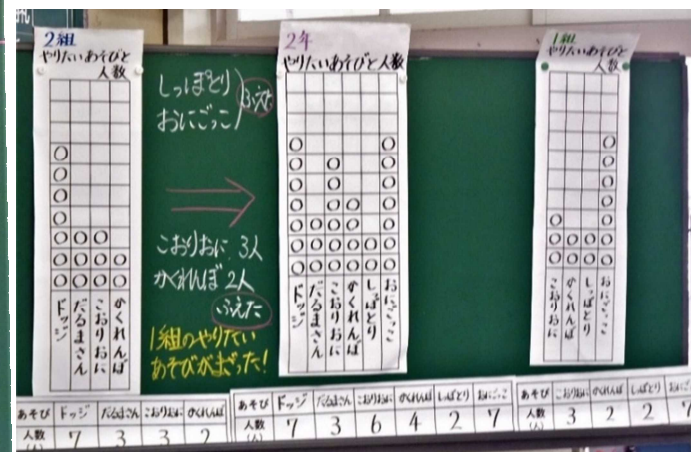 2組
やりたいあそびと
人数
ドッジ
だるまさん
こおりおに
かくれんぼ
しっぽとり
おにごっこ
ふえた
こおりおに 3人
かくれんぼ 2人
ふえた
1組のやりたい
あそびがまざった!
2年
やりたいあそびと
人数
ドッジ
だるまさん
こおりおに
かくれんぼ
しっぽとり
おにごっこ
1組
やりたいあそびと
人数
こおりおに
かくれんぼ
しっぽとり
おにごっこ
あそび ドッジ だるまさん こおりおに かくれんぼ
人数(人) 7 3 3 2
あそび ドッジ だるまさん こおりおに かくれんぼ しっぽとり おにごっこ
人数(人) 7 3 6 4 2 7
あそび こおりおに かくれんぼ しっぽとり おにごっこ
人数(人) 3 2 2 7